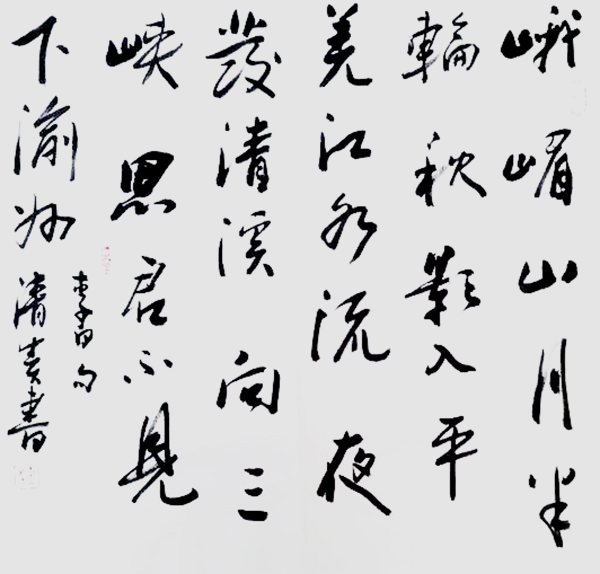 峨嵋山月半
輪秋影入平
羌江水流夜
發清溪向三
峽思君不見
下渝州
李白句
書